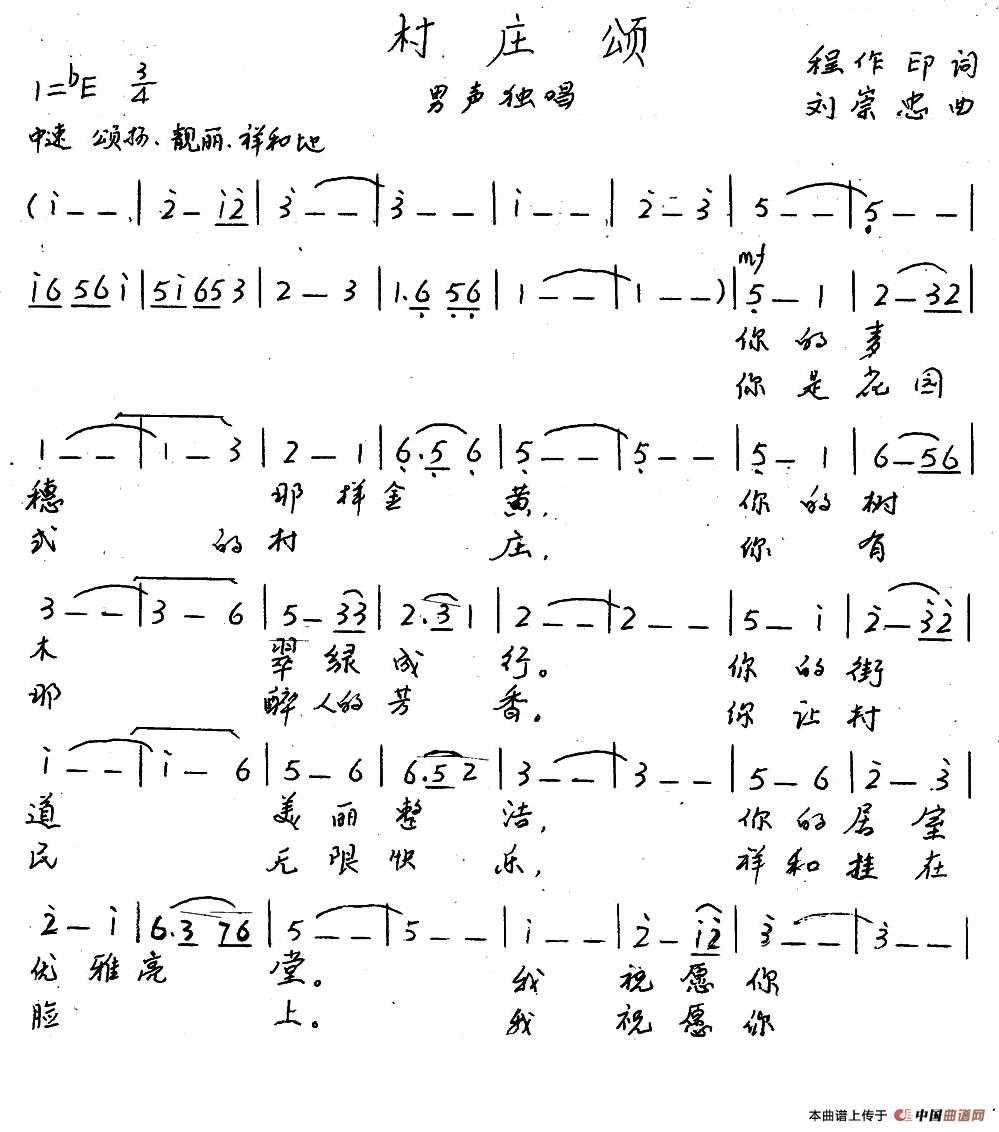 村庄颂
1=♭E 3/4
男声独唱
程作印词
刘崇忠曲
中速 颂扬、靓丽、祥和地
(i̇ - - | 2̇ - i̇2̇ | 3̇ - - | 3̇ - - | i̇ - - | 2̇ - 3̇ | 5 - - | 5̣ - - |
i̇6 56 i̇ | 5i̇ 65 3 | 2 - 3 | 1. 6̣ 5̣6̣ | 1 - - | 1 - -) | 5̣ - 1 | 2 - 32 |
mf
你的麦
你是花园
1 - - | 1 - 3 | 2 - 1 | 6̣. 5̣ 6̣ | 5̣ - - | 5̣ - - | 5̣ - 1 | 6 - 56 |
穗 那样金黄, 你的树
式 的村 庄, 你 有
3 - - | 3 - 6 | 5 - 33 | 2. 3 1 | 2 - - | 2 - - | 5 - i̇ | 2̇ - 3̇2̇ |
木 翠绿成行。 你的街
那 醉人的芳香。 你让村
i̇ - - | i̇ - 6 | 5 - 6 | 6. 5 2 | 3 - - | 3 - - | 5 - 6 | 2̇ - 3̇ |
道 美丽整洁, 你的居室
民 无限快乐, 祥和挂在
2̇ - i̇ | 6. 3 76 | 5 - - | 5 - - | i̇ - - | 2̇ - i̇2̇ | 3̇ - - | 3̇ - - |
优雅亮堂。 我祝愿你
脸 上。 我祝愿你
本曲谱上传于 中国曲谱网